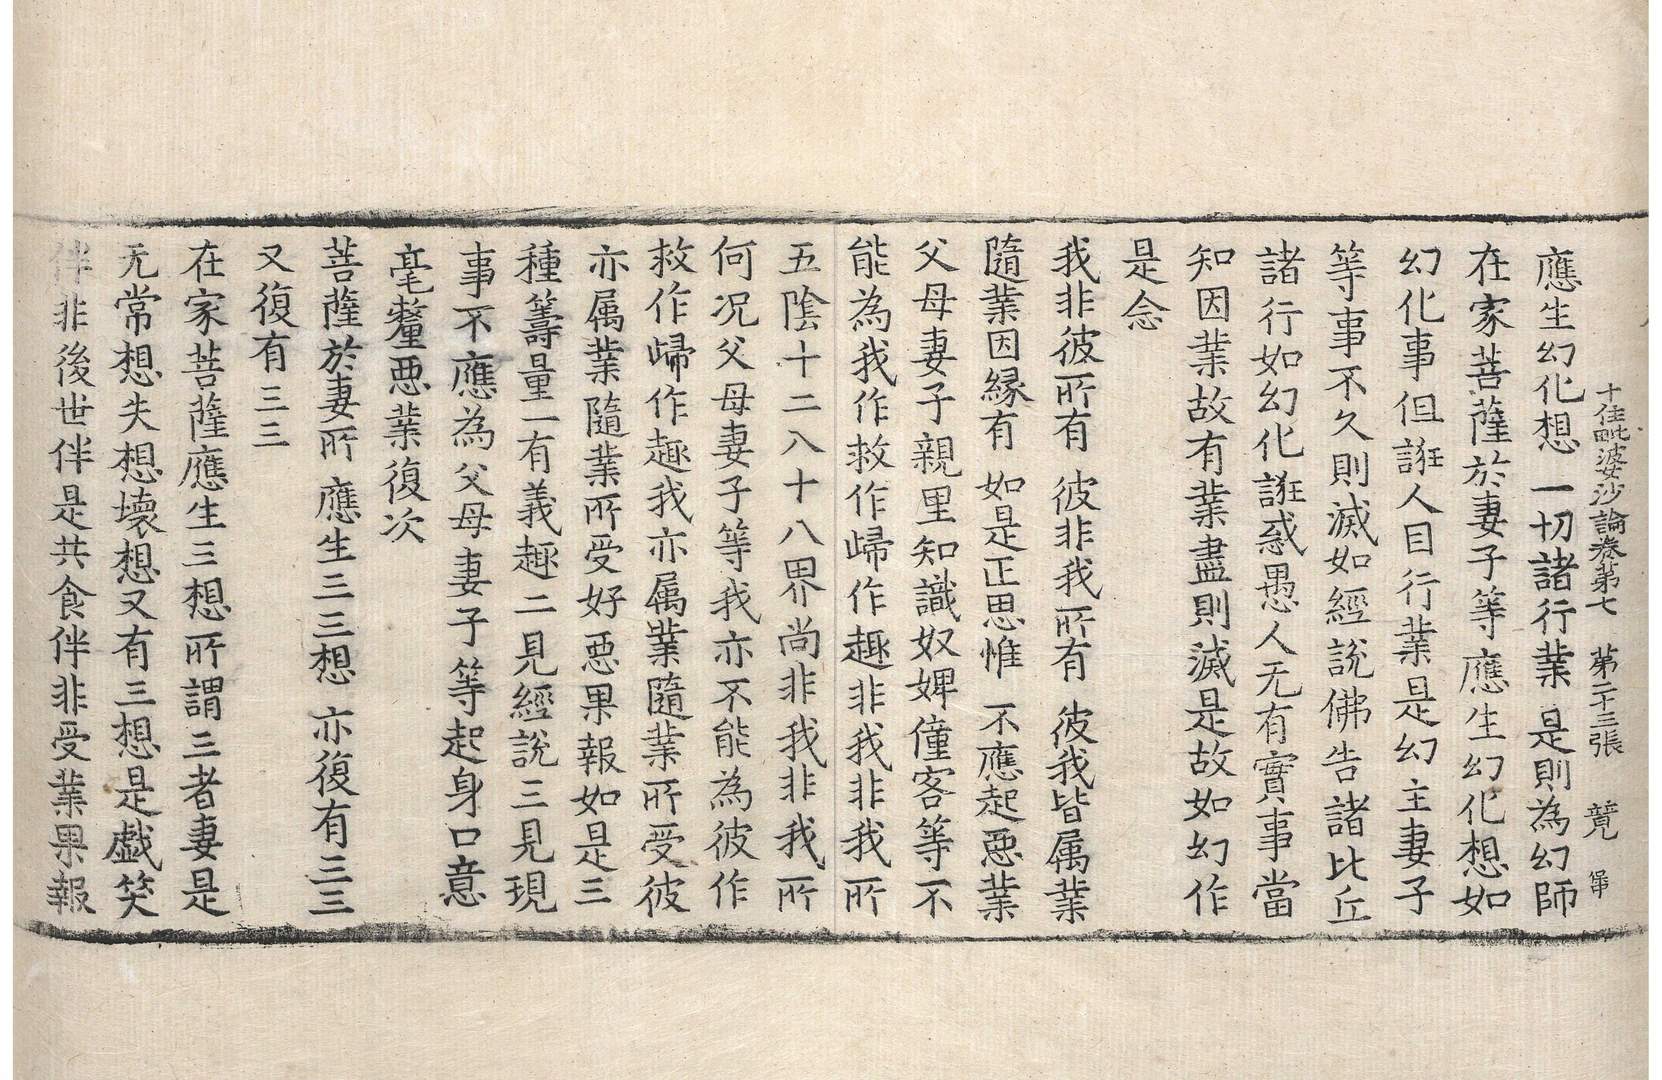 十住毗婆沙論卷第七　第二十三張　竟
應生幻化想　一切諸行業　是則為幻師
在家菩薩於妻子等應生幻化想如
幻化事但誑人目行業是幻主妻子
等事不久則滅如經說佛告諸比丘
諸行如幻化誑惑愚人无有實事當
知因業故有業盡則滅是故如幻作
是念
我非彼所有　彼非我所有　彼我皆属業
隨業因緣有　如是正思惟　不應起惡業
父母妻子親里知識奴婢僮客等不
能為我作救作歸作趣非我非我所
五陰十二入十八界尚非我非我所
何况父母妻子等我亦不能為彼作
救作歸作趣我亦属業隨業所受彼
亦属業隨業所受好惡果報如是三
種籌量一有義趣二見經說三見現
事不應為父母妻子等起身口意
毫釐惡業復次
菩薩於妻所　應生三三想　亦復有三三
又復有三三
在家菩薩應生三想所謂三者妻是
无常想失想壞想又有三想是戲笑
伴非後世伴是共食伴非受業果報